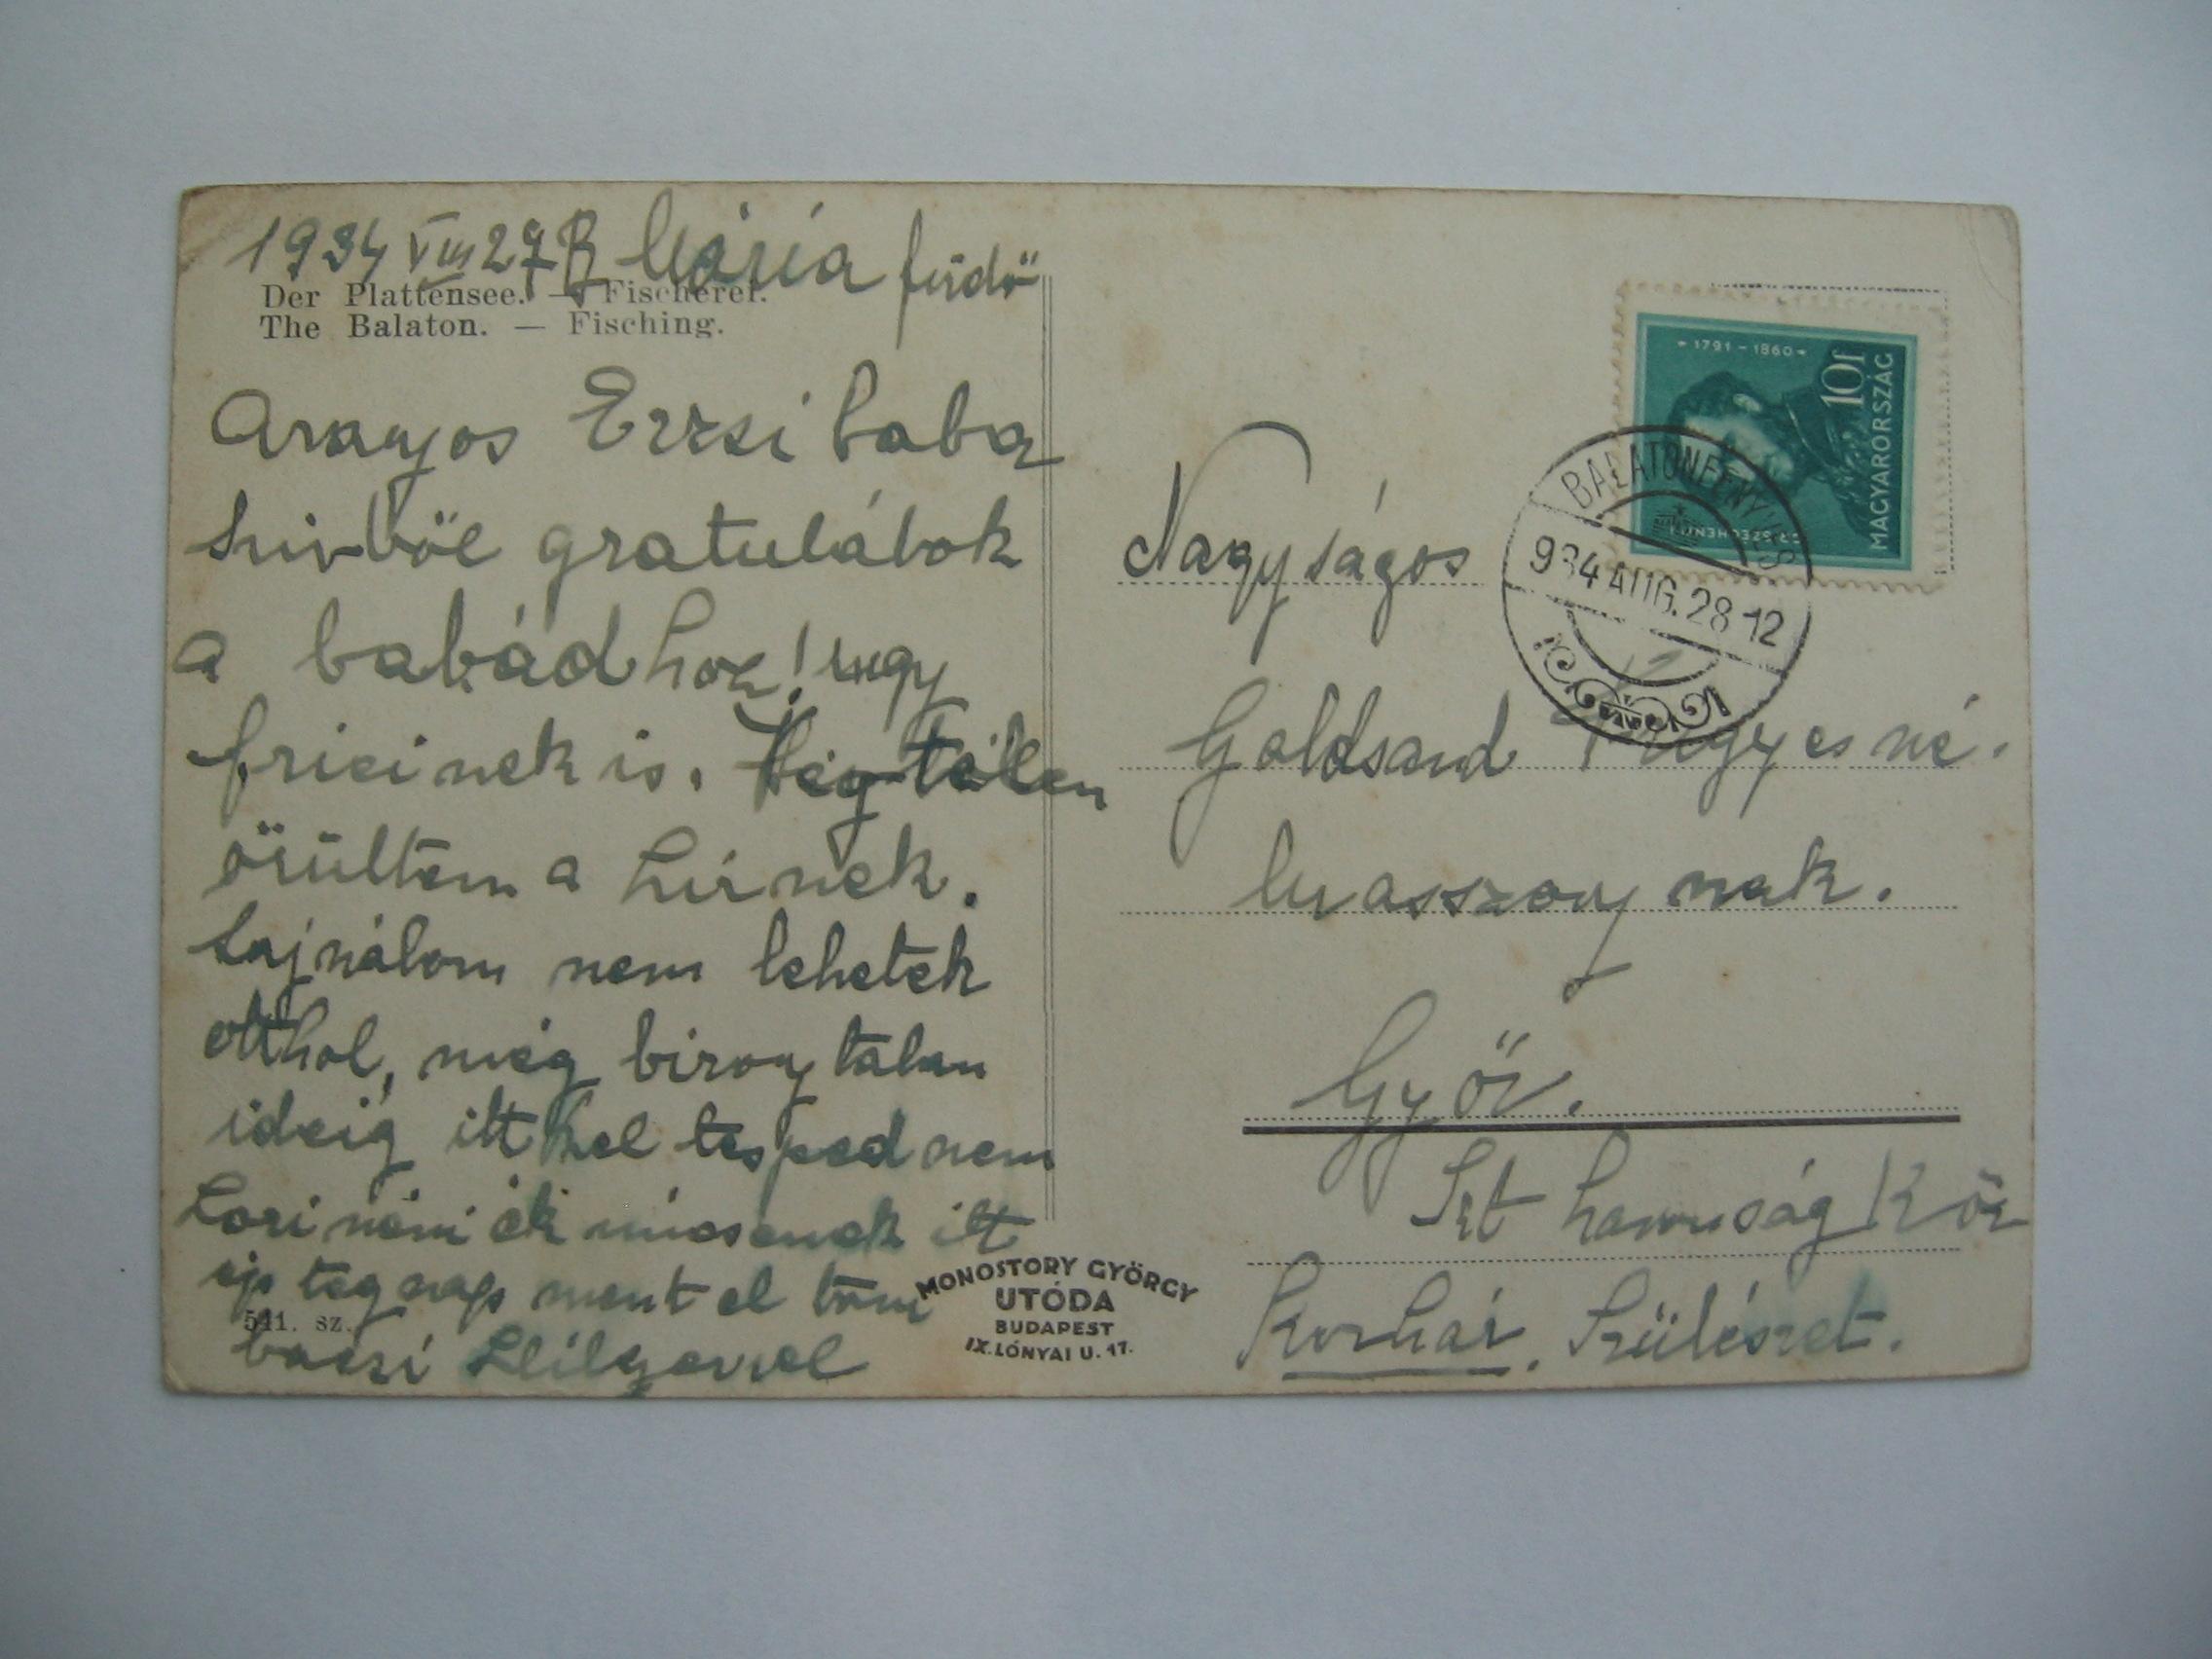 1934 VIII 27 B Mária fürdő
Der Plattensee. — Fischerei.
The Balaton. — Fisching.
Aranyos Erzsi baba
szivböl gratulálok
a babádhoz! ugy
fricinek is. Végtelen
örültem a hírnek.
Sajnálom nem lehetek
otthol, még birony talan
ideig itt kel tespednem
Lori néni ék nincsenek itt
ép tegnap ment el
541. sz.
bácsi
MONOSTORY GYÖRGY
UTÓDA
BUDAPEST
IX. LÓNYAI U. 17.
1791 - 1860
10f
MAGYARORSZÁG
GR. SZÉCHENYI I.
BALATONFENYVES
934 AUG. 28 -12
Nagyságos
Goldsand Frigyesné.
urasszony nak.
Győr.
Szt háromság
Korház. Szülészet.